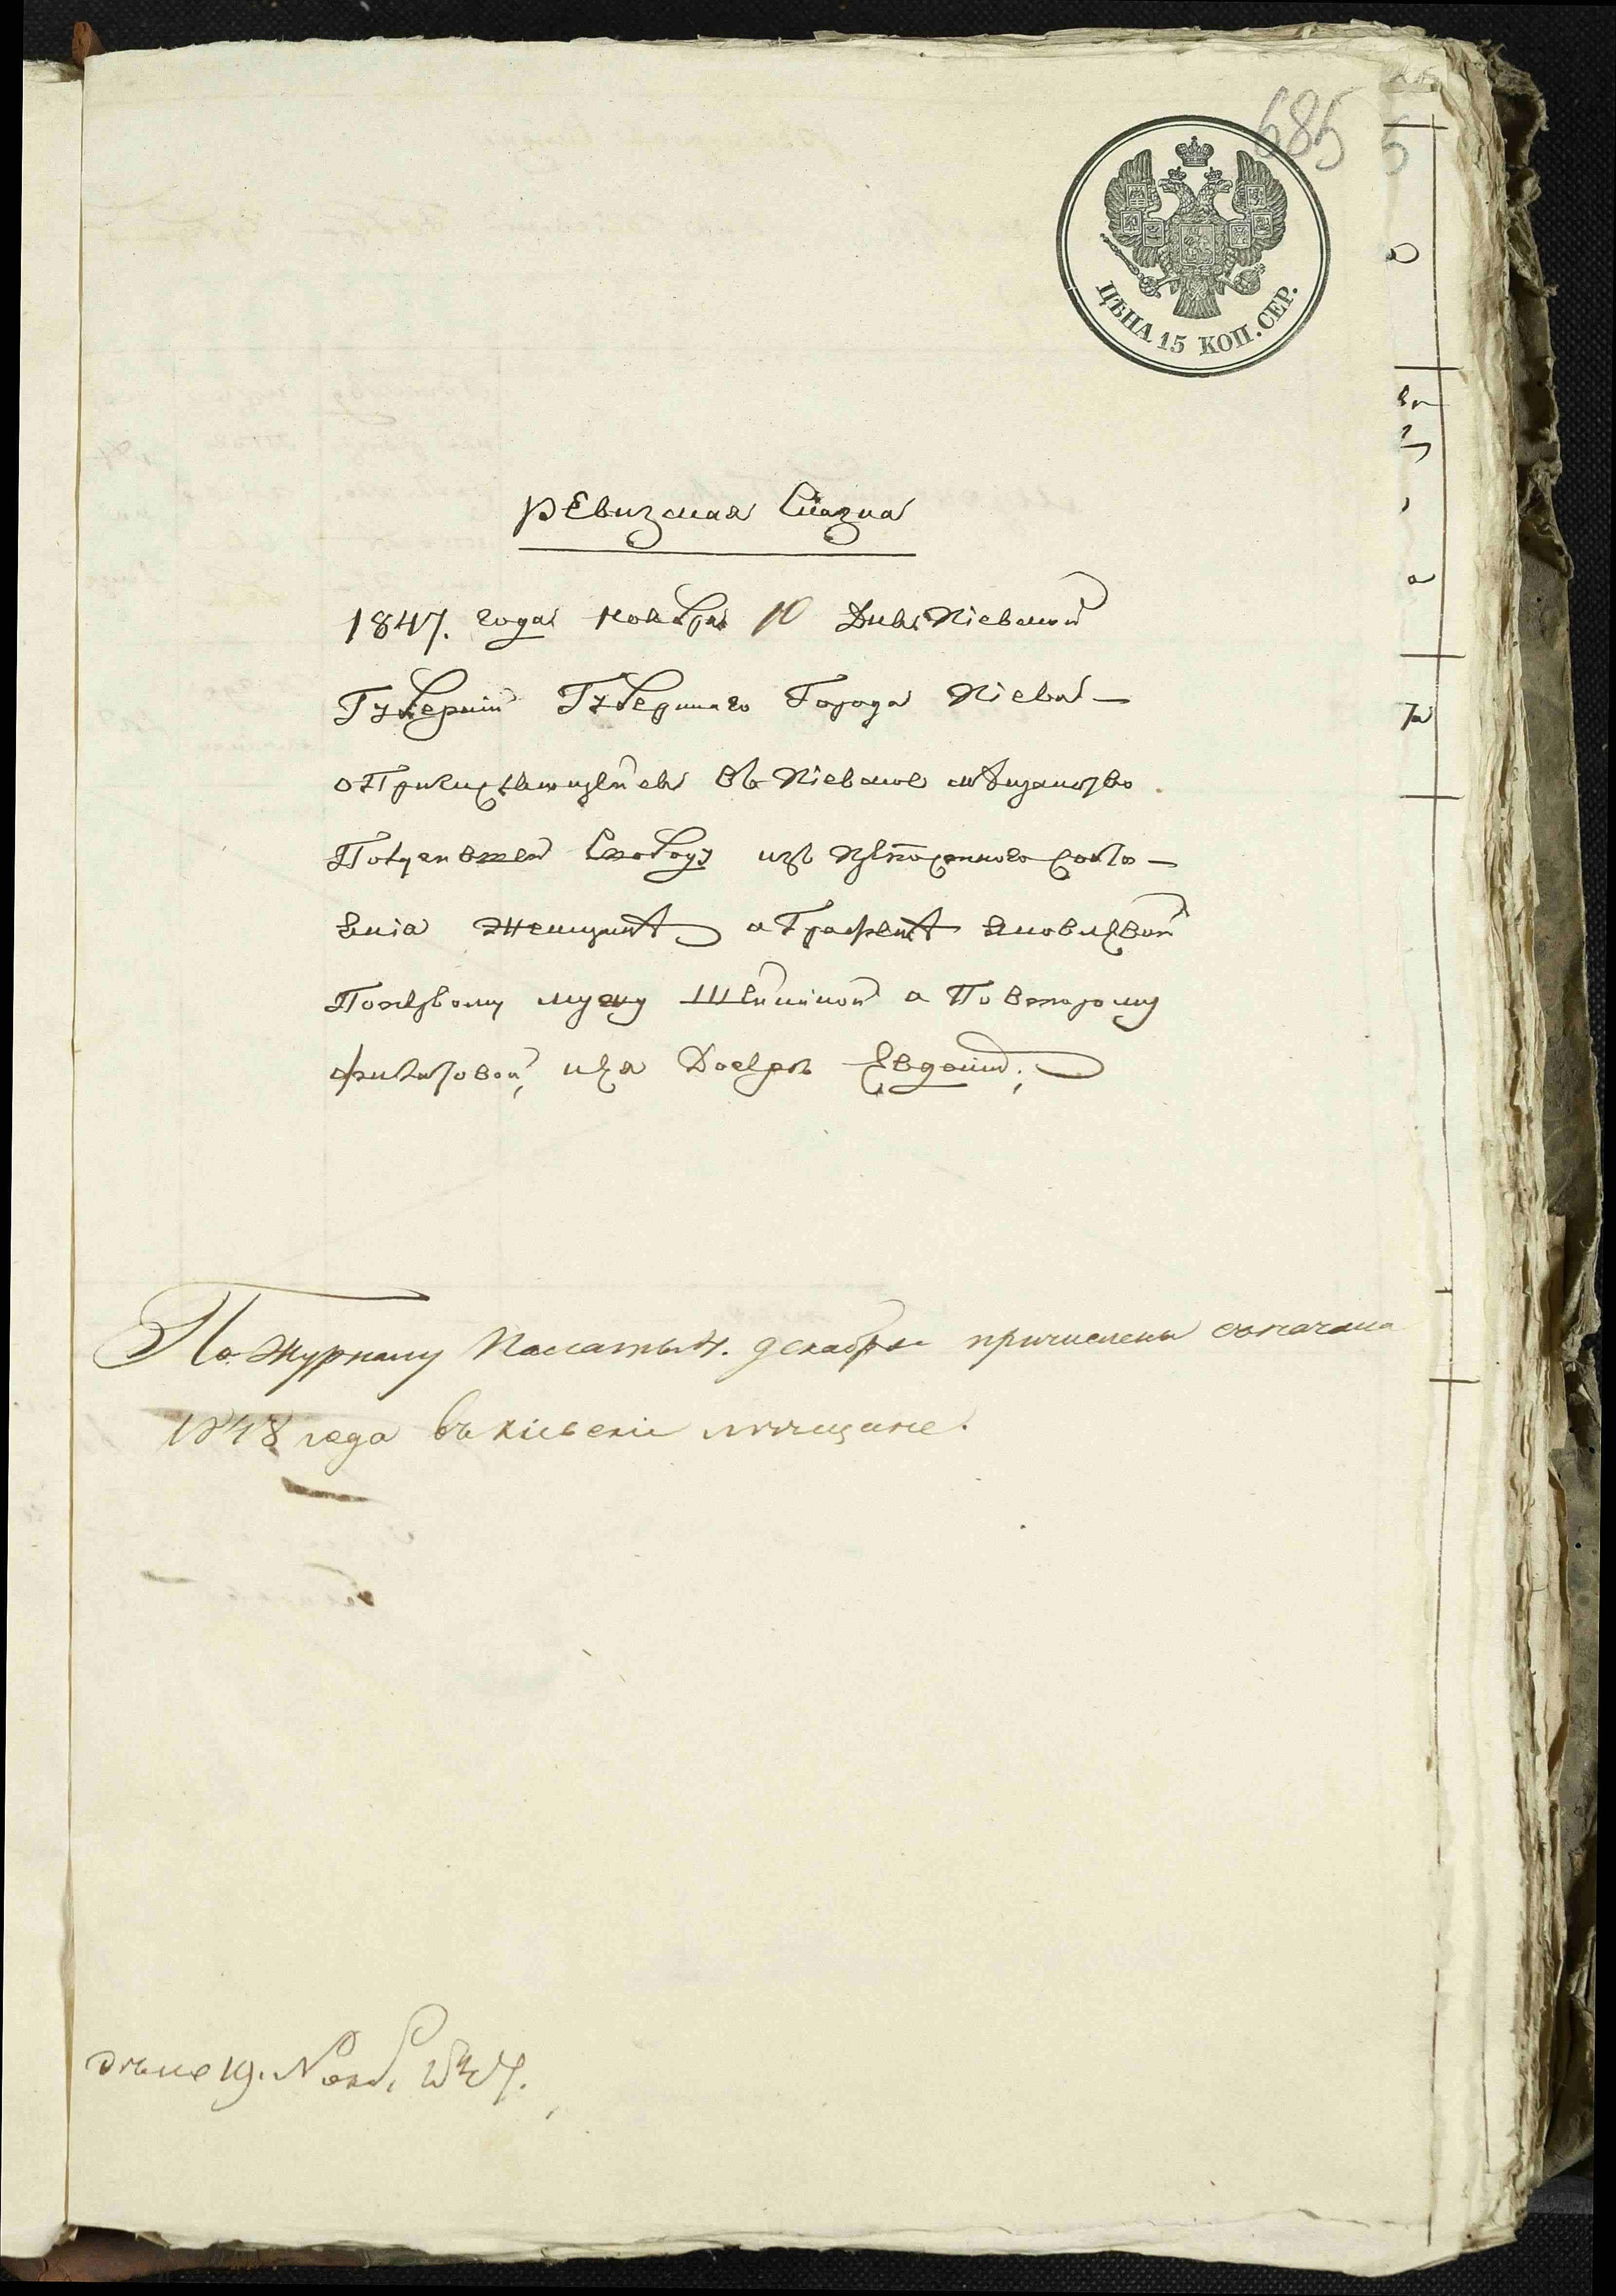 685
ЦѢНА 15 КОП. СЕР.
Ревизская Сказка
1847. года ноября 10 дня Кіевской
Губерніи Губернскаго Города Кіева
о Причисляющейся въ Кіевское мѣщанство
Получившей Свободу изъ крѣпостнаго состо-
янія Женщинѣ аграфенѣ яковлевой
По первому мужу а По второму
и ея Дочерѣ Евдокіи;
По Журналу Палаты 4. декабря причислены съ начала
1848 года въ кіевскіе мѣщане.
19. Нояб. 1847.